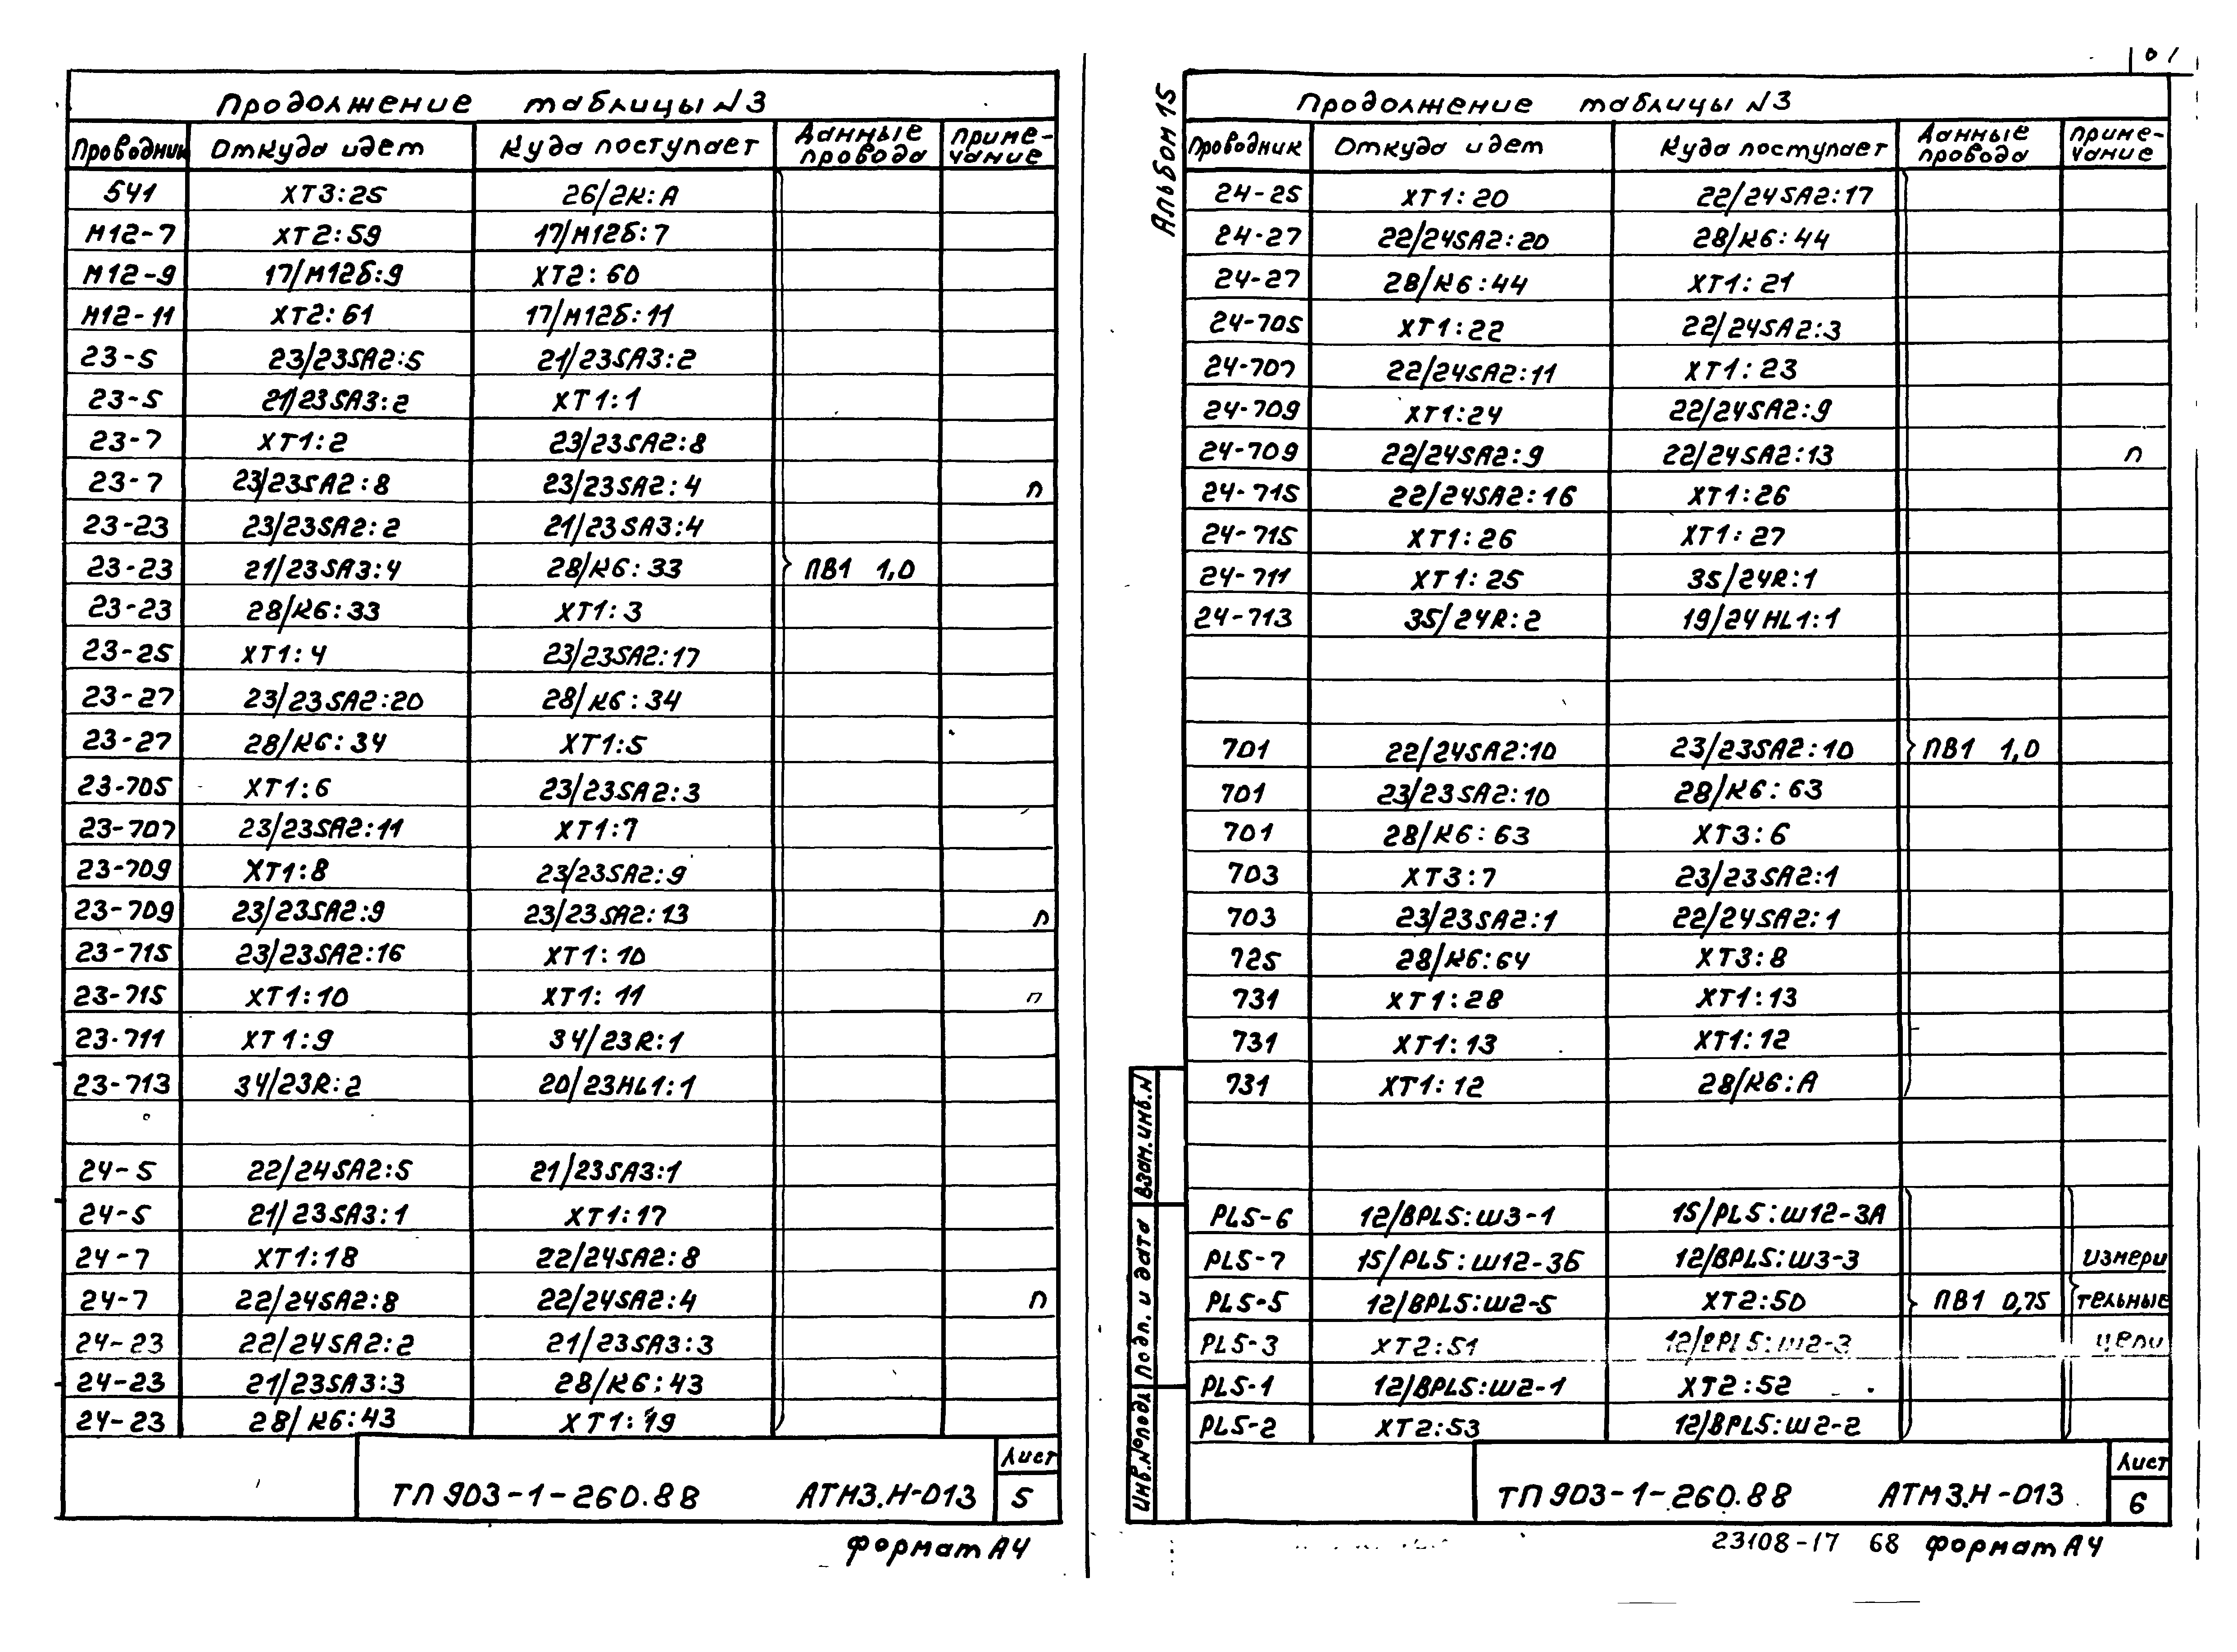 Продолжение таблицы N3
Проводник Откуда идет Куда поступает Данные провода Приме-чание
541 XT3:25 26/2К:А
М12-7 XT2:59 17/М12Б:7
М12-9 17/М12Б:9 XT2:60
М12-11 XT2:61 17/М12Б:11
23-5 23/23SA2:5 21/23SA3:2
23-5 21/23SA3:2 XT1:1
23-7 XT1:2 23/23SA2:8
23-7 23/23SA2:8 23/23SA2:4 п
23-23 23/23SA2:2 21/23SA3:4
23-23 21/23SA3:4 28/К6:33 ПВ1 1,0
23-23 28/К6:33 XT1:3
23-25 XT1:4 23/23SA2:17
23-27 23/23SA2:20 28/К6:34
23-27 28/К6:34 XT1:5
23-705 XT1:6 23/23SA2:3
23-707 23/23SA2:11 XT1:7
23-709 XT1:8 23/23SA2:9
23-709 23/23SA2:9 23/23SA2:13 п
23-715 23/23SA2:16 XT1:10
23-715 XT1:10 XT1:11 п
23-711 XT1:9 34/23R:1
23-713 34/23R:2 20/23HL1:1
24-5 22/24SA2:5 21/23SA3:1
24-5 21/23SA3:1 XT1:17
24-7 XT1:18 22/24SA2:8
24-7 22/24SA2:8 22/24SA2:4 п
24-23 22/24SA2:2 21/23SA3:3
24-23 21/23SA3:3 28/К6:43
24-23 28/К6:43 XT1:19
ТП 903-1-260.88 АТМ3.Н-013 Лист 5
Формат А4
Альбом 15
Продолжение таблицы N3
Проводник Откуда идет Куда поступает Данные провода Приме-чание
24-25 XT1:20 22/24SA2:17
24-27 22/24SA2:20 28/К6:44
24-27 28/К6:44 XT1:21
24-705 XT1:22 22/24SA2:3
24-707 22/24SA2:11 XT1:23
24-709 XT1:24 22/24SA2:9
24-709 22/24SA2:9 22/24SA2:13 п
24-715 22/24SA2:16 XT1:26
24-715 XT1:26 XT1:27
24-711 XT1:25 35/24R:1
24-713 35/24R:2 19/24HL1:1
701 22/24SA2:10 23/23SA2:10 ПВ1 1,0
701 23/23SA2:10 28/К6:63
701 28/К6:63 XT3:6
703 XT3:7 23/23SA2:1
703 23/23SA2:1 22/24SA2:1
725 28/К6:64 XT3:8
731 XT1:28 XT1:13
731 XT1:13 XT1:12
731 XT1:12 28/К6:А
PL5-6 12/BPL5:Ш3-1 15/PL5:Ш12-3А
PL5-7 15/PL5:Ш12-3Б 12/BPL5:Ш3-3 измери
PL5-5 12/BPL5:Ш2-5 XT2:50 ПВ1 0,75 тельные
PL5-3 XT2:51 12/BPL5:Ш2-3 цепи
PL5-1 12/BPL5:Ш2-1 XT2:52
PL5-2 XT2:53 12/BPL5:Ш2-2
Взам.инв.N
Подп. и дата
Инв.№подл
ТП 903-1-260.88 АТМ3.Н-013 Лист 6
23108-17 68 Формат А4